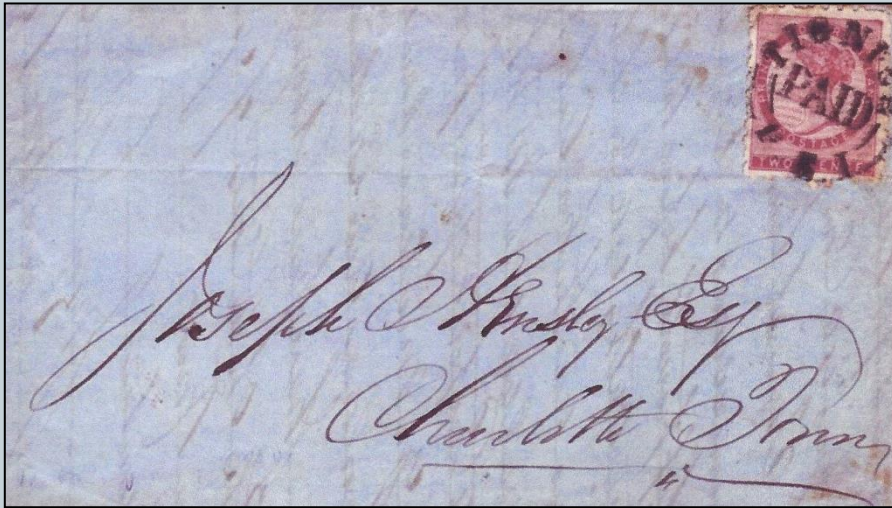 TIGNISH
PAID
P E I
POSTAGE
TWO PENCE
Joseph Hensley Esq
Charlotte Town